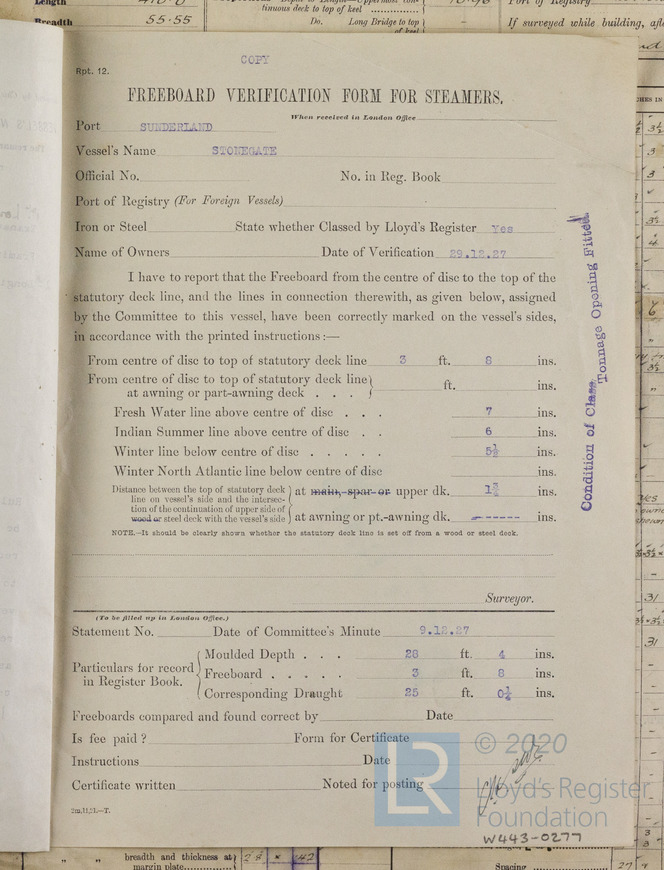 Length
55·55
Breadth
tinuous deck to top of keel
Do. Long Bridge to top
of keel
Port of Registry
If surveyed while building,
COPY
Rpt. 12.
FREEBOARD VERIFICATION FORM FOR STEAMERS.
When received in London Office
Port SUNDERLAND
Vessel's Name STONEGATE
Official No. No. in Reg. Book
Port of Registry (For Foreign Vessels)
Iron or Steel State whether Classed by Lloyd's Register Yes
Name of Owners Date of Verification 29.12.27
I have to report that the Freeboard from the centre of disc to the top of the
statutory deck line, and the lines in connection therewith, as given below, assigned
by the Committee to this vessel, have been correctly marked on the vessel's sides,
in accordance with the printed instructions :—
From centre of disc to top of statutory deck line 3 ft. 8 ins.
From centre of disc to top of statutory deck line
at awning or part-awning deck . . . ft. ins.
Fresh Water line above centre of disc . . . 7 ins.
Indian Summer line above centre of disc . . 6 ins.
Winter line below centre of disc . . . . . 5½ ins.
Winter North Atlantic line below centre of disc ins.
Distance between the top of statutory deck
line on vessel's side and the intersec-
tion of the continuation of upper side of
wood or steel deck with the vessel's side
at main, spar or upper dk. 1¾ ins.
at awning or pt.-awning dk. ------ ins.
NOTE.—It should be clearly shown whether the statutory deck line is set off from a wood or steel deck.
Surveyor.
(To be filled up in London Office.)
Statement No. Date of Committee's Minute 9.12.27
Particulars for record
in Register Book.
Moulded Depth . . . 28 ft. 4 ins.
Freeboard . . . . . 3 ft. 8 ins.
Corresponding Draught 25 ft. 0½ ins.
Freeboards compared and found correct by Date
Is fee paid ? Form for Certificate
Instructions Date
Certificate written Noted for posting
2m,11,21.—T.
Condition of Class
Tonnage Opening Fitted
LR
© 2020
Lloyd's Register
Foundation
W443-0277
breadth and thickness at
margin plate
Spacing
27